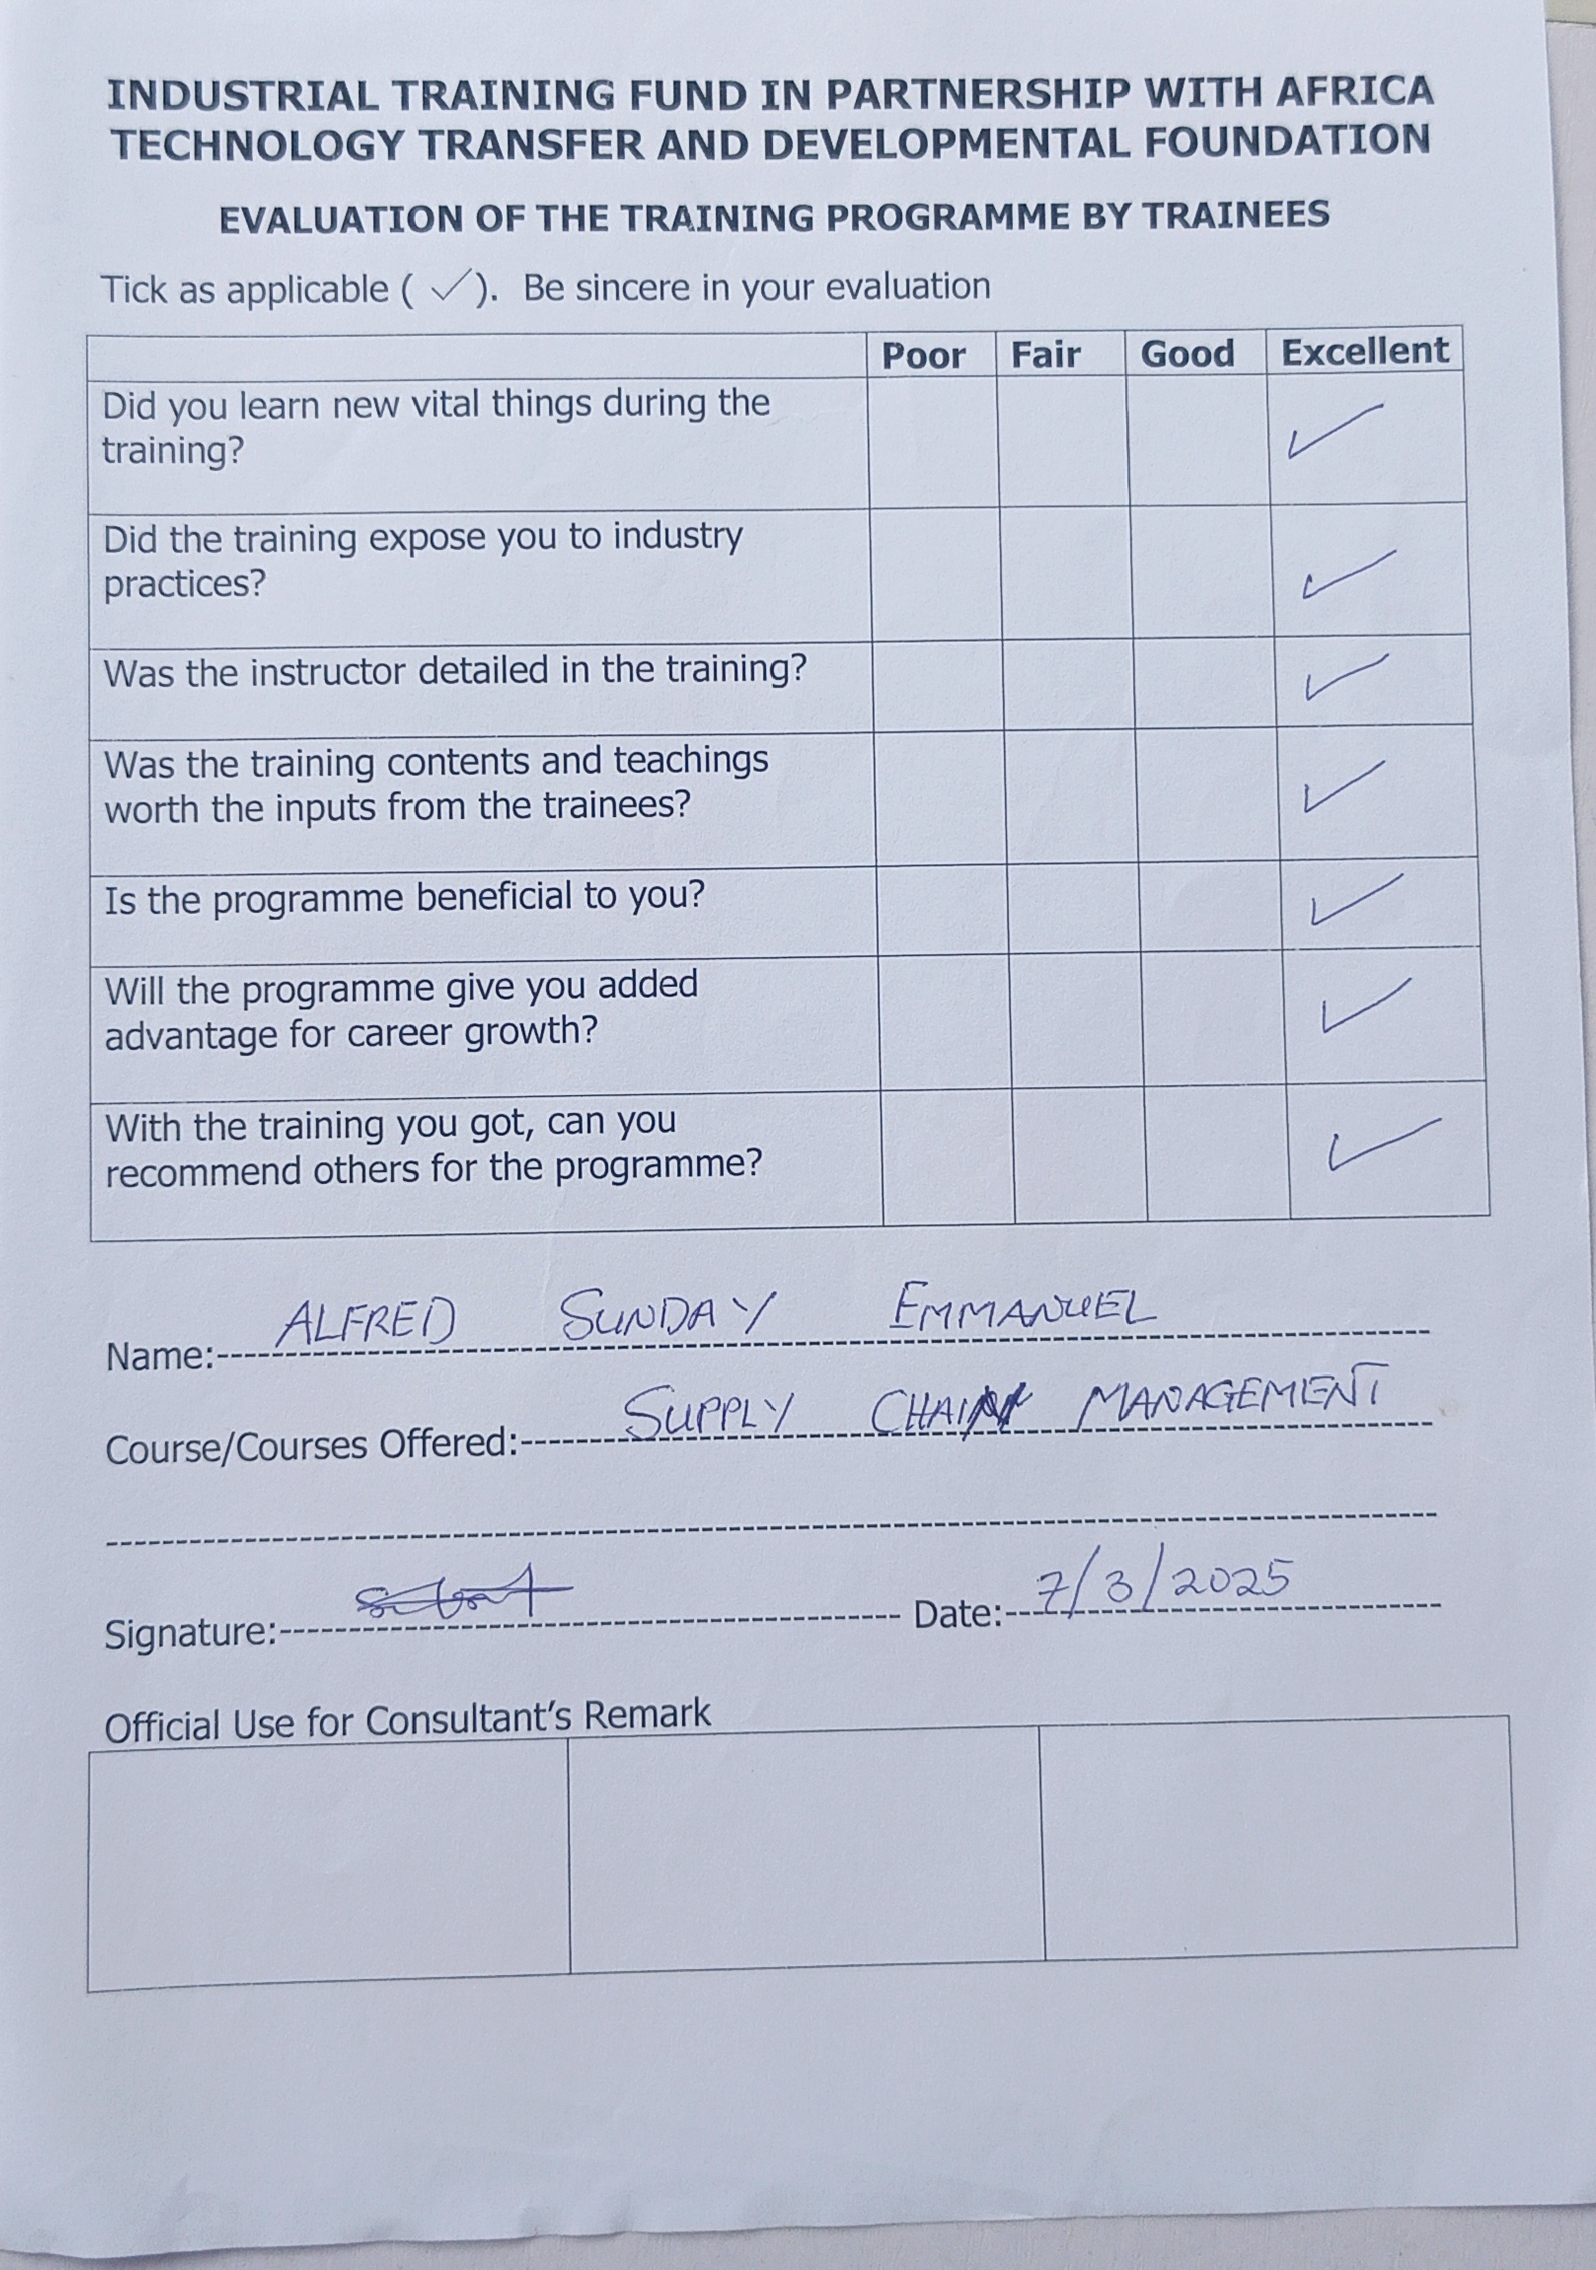 INDUSTRIAL TRAINING FUND IN PARTNERSHIP WITH AFRICA
TECHNOLOGY TRANSFER AND DEVELOPMENTAL FOUNDATION
EVALUATION OF THE TRAINING PROGRAMME BY TRAINEES
Tick as applicable ( ✓ ). Be sincere in your evaluation
Poor Fair Good Excellent
Did you learn new vital things during the
training? ✓
Did the training expose you to industry
practices? ✓
Was the instructor detailed in the training? ✓
Was the training contents and teachings
worth the inputs from the trainees? ✓
Is the programme beneficial to you? ✓
Will the programme give you added
advantage for career growth? ✓
With the training you got, can you
recommend others for the programme? ✓
Name: ALFRED SUNDAY EMMANUEL
Course/Courses Offered: SUPPLY CHAIN MANAGEMENT
Signature: Date: 7/3/2025
Official Use for Consultant's Remark